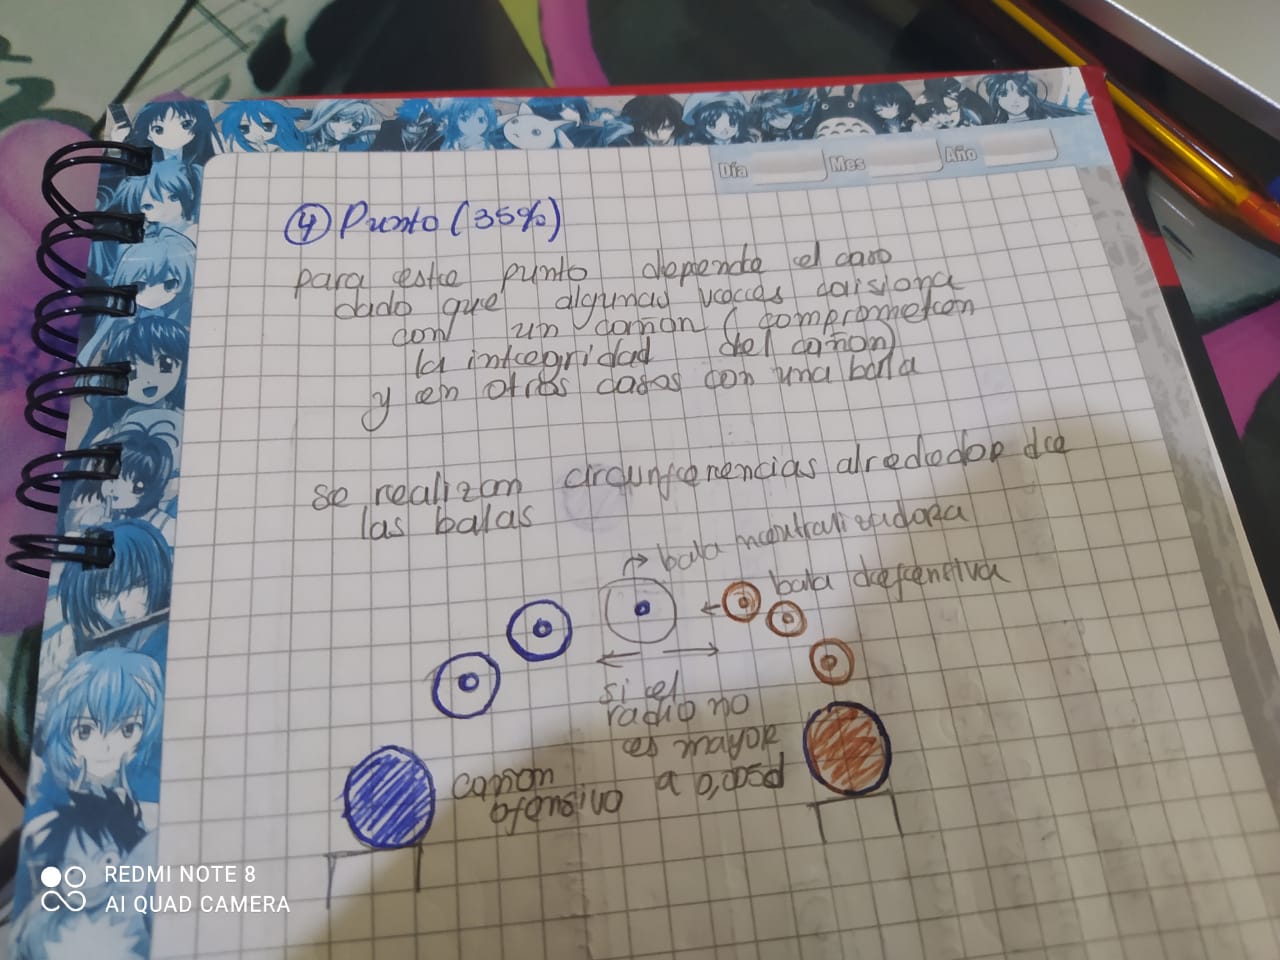 Día Mes Año
④ Punto (35%)
para este punto depende el caso
dado que algunas veces colisiona
con un cañon (comprometen
la integridad del cañon)
y en otros casos con una bala
se realizan circunferencias alrededor de
las balas
bala neutralizadora
bala defensiva
si el
radio no
es mayor
a 0,
canon
ofensivo
REDMI NOTE 8
AI QUAD CAMERA